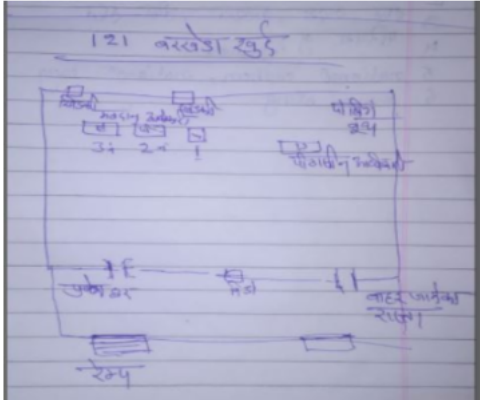 121 बरखेडा खुर्द
खिडकी खिडकी
मतदान अधिकारी
3 2 1
पोलिंग
बूथ
पीठासीन अधिकारी
प्रवेश द्वार
बाहर जाने का
रास्ता
रेम्प